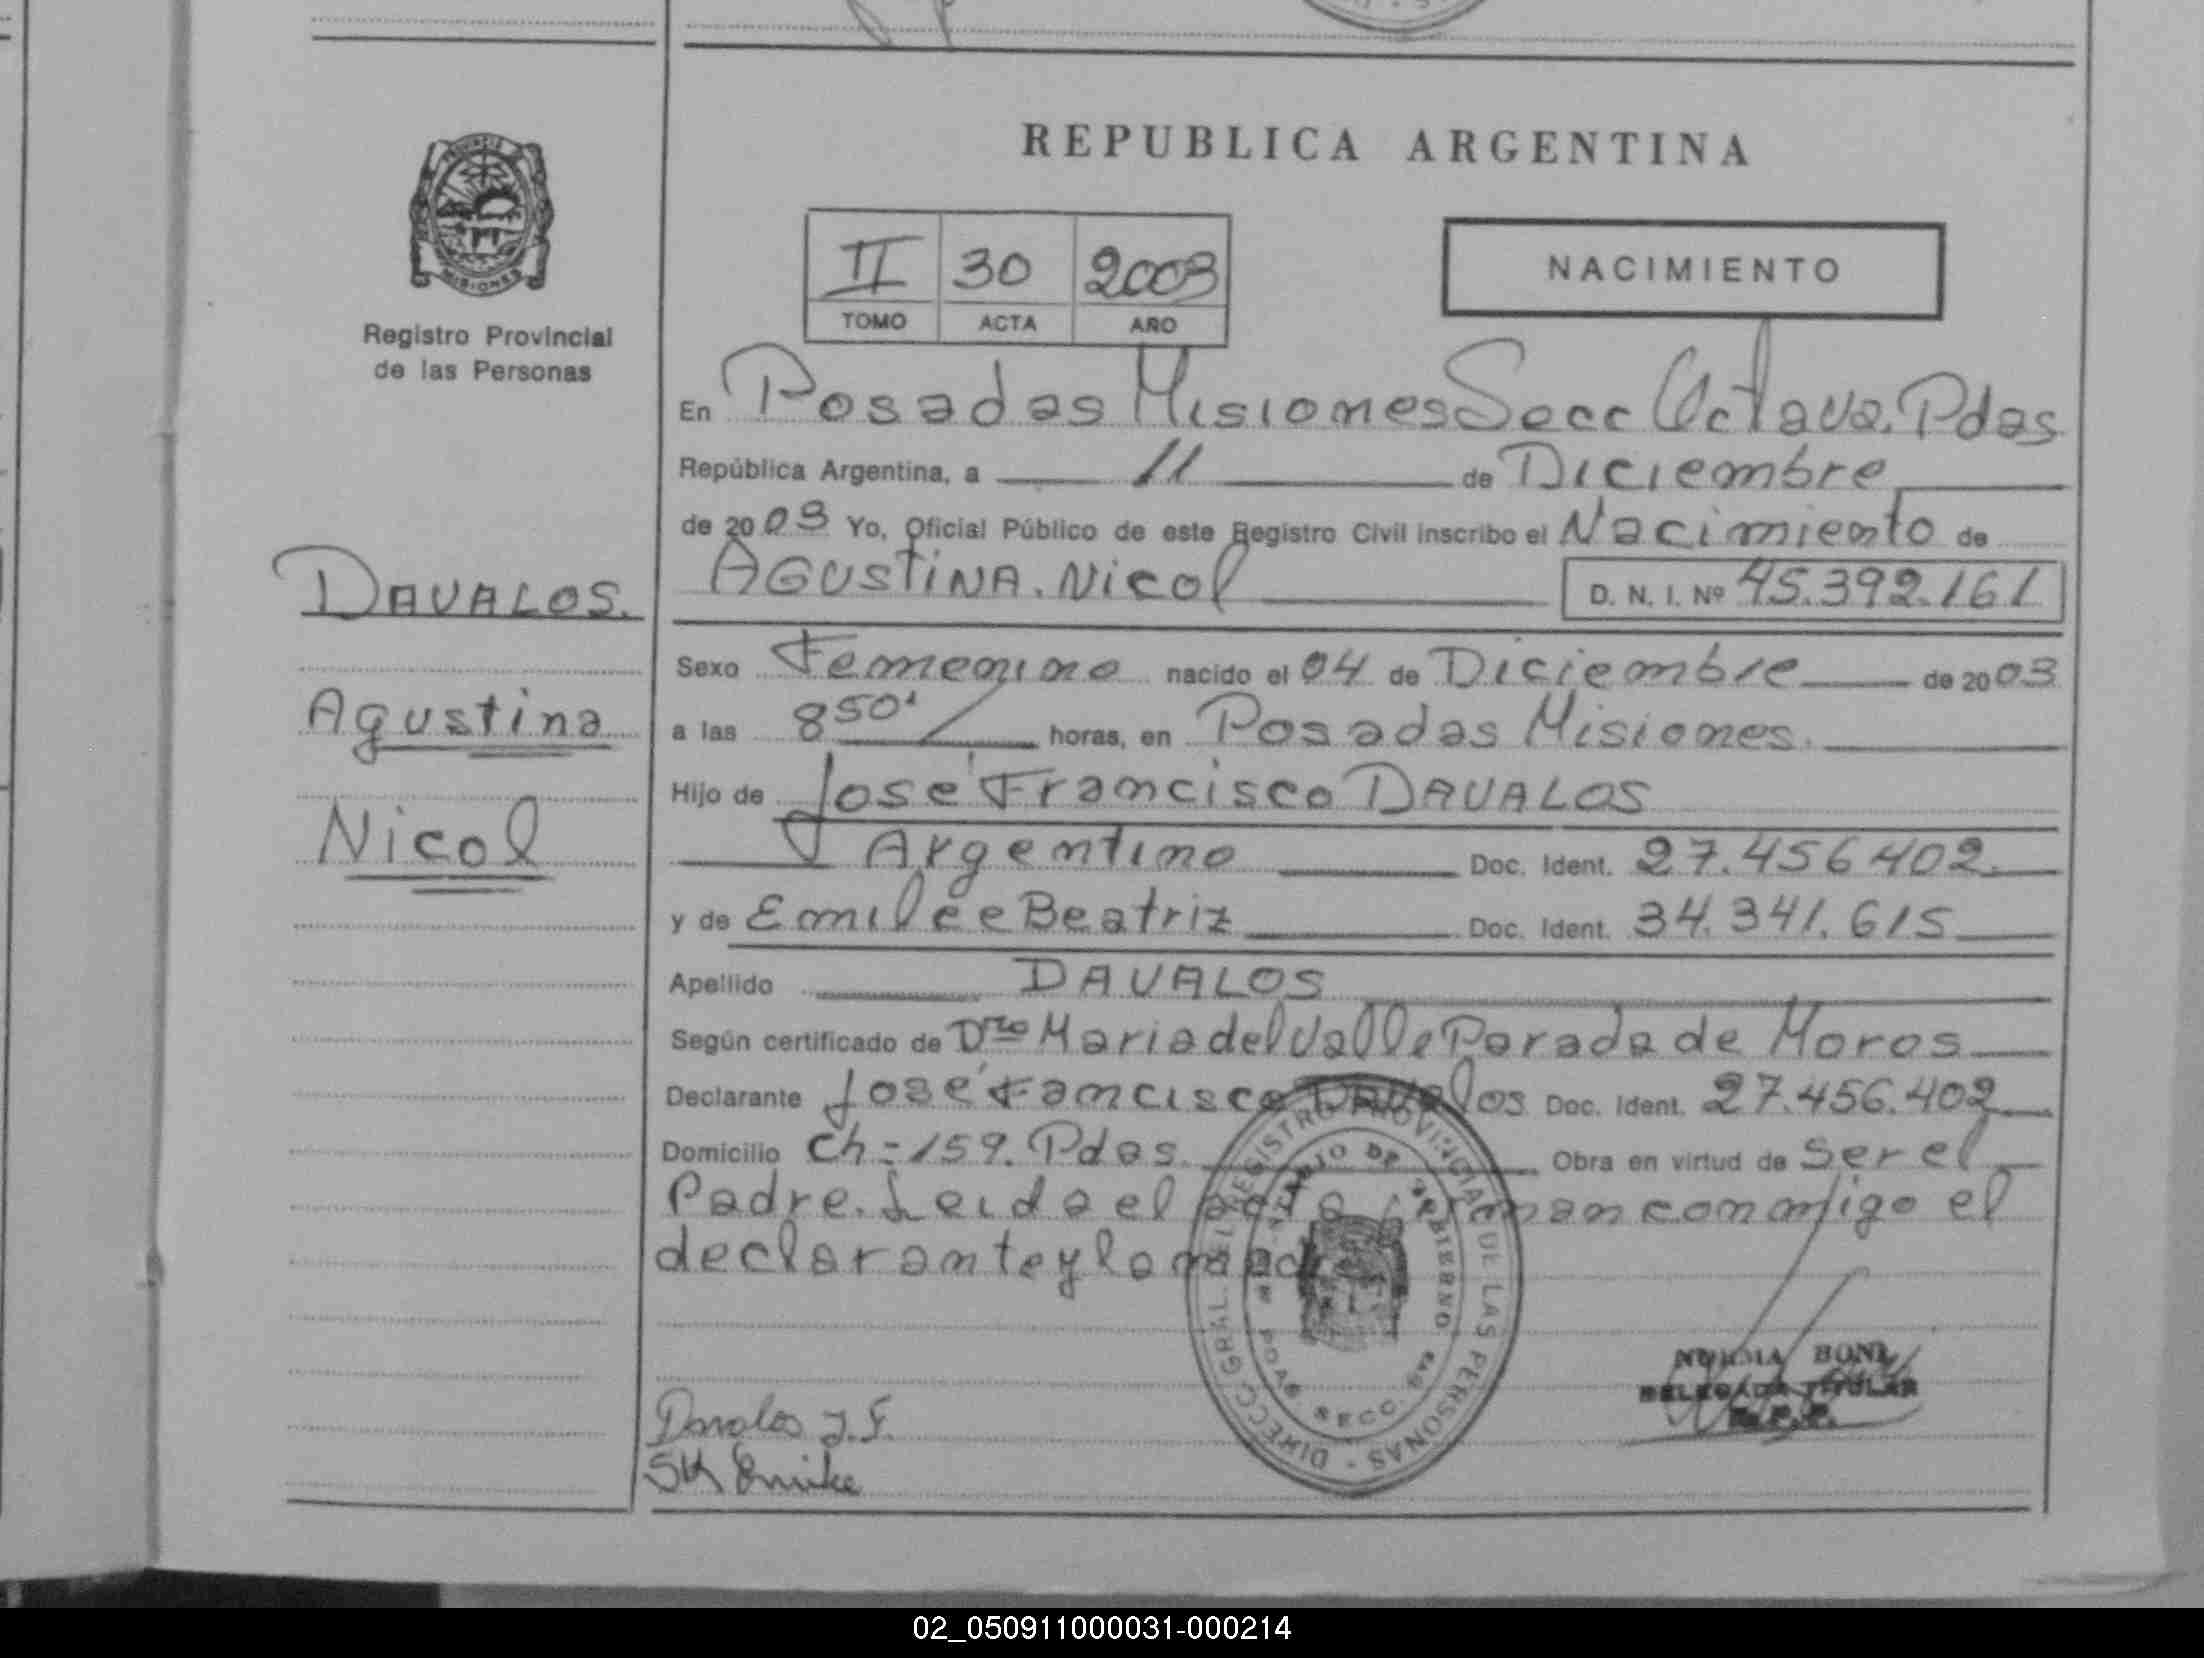 REPUBLICA ARGENTINA
PROVINCIA
MISIONES
Registro Provincial
de las Personas
II 30 2003
TOMO ACTA AÑO
NACIMIENTO
En Posadas Misiones Secc Octava. Pdas
República Argentina, a 11 de Diciembre
de 2003 Yo, Oficial Público de este Registro Civil inscribo el Nacimiento de
AGUSTINA. Nicol D. N. I. Nº 45.392.161
DAVALOS.
Agustina
Nicol
Sexo Femenino nacido el 04 de Diciembre de 2003
a las 8 50' horas, en Posadas Misiones.
Hijo de José Francisco DAVALOS
Argentino Doc. Ident. 27.456402.
y de Emilce Beatriz Doc. Ident. 34.341.615
Apellido DAVALOS
Según certificado de Dra Maria del Valle Parada de Moros
Declarante José Fancisco Davalos Doc. Ident. 27.456.402
Domicilio Ch=159. Pdas. Obra en virtud de ser el
Padre. Leida el acta firman conmigo el
declarante y la madre
DIRECC. GRAL. DEL REGISTRO PROVINCIAL DE LAS PERSONAS
GOBIERNO
POAS. SECC.
NORMA BONL
DELEGADA TITULAR
Davalos J. F.
02_050911000031-000214